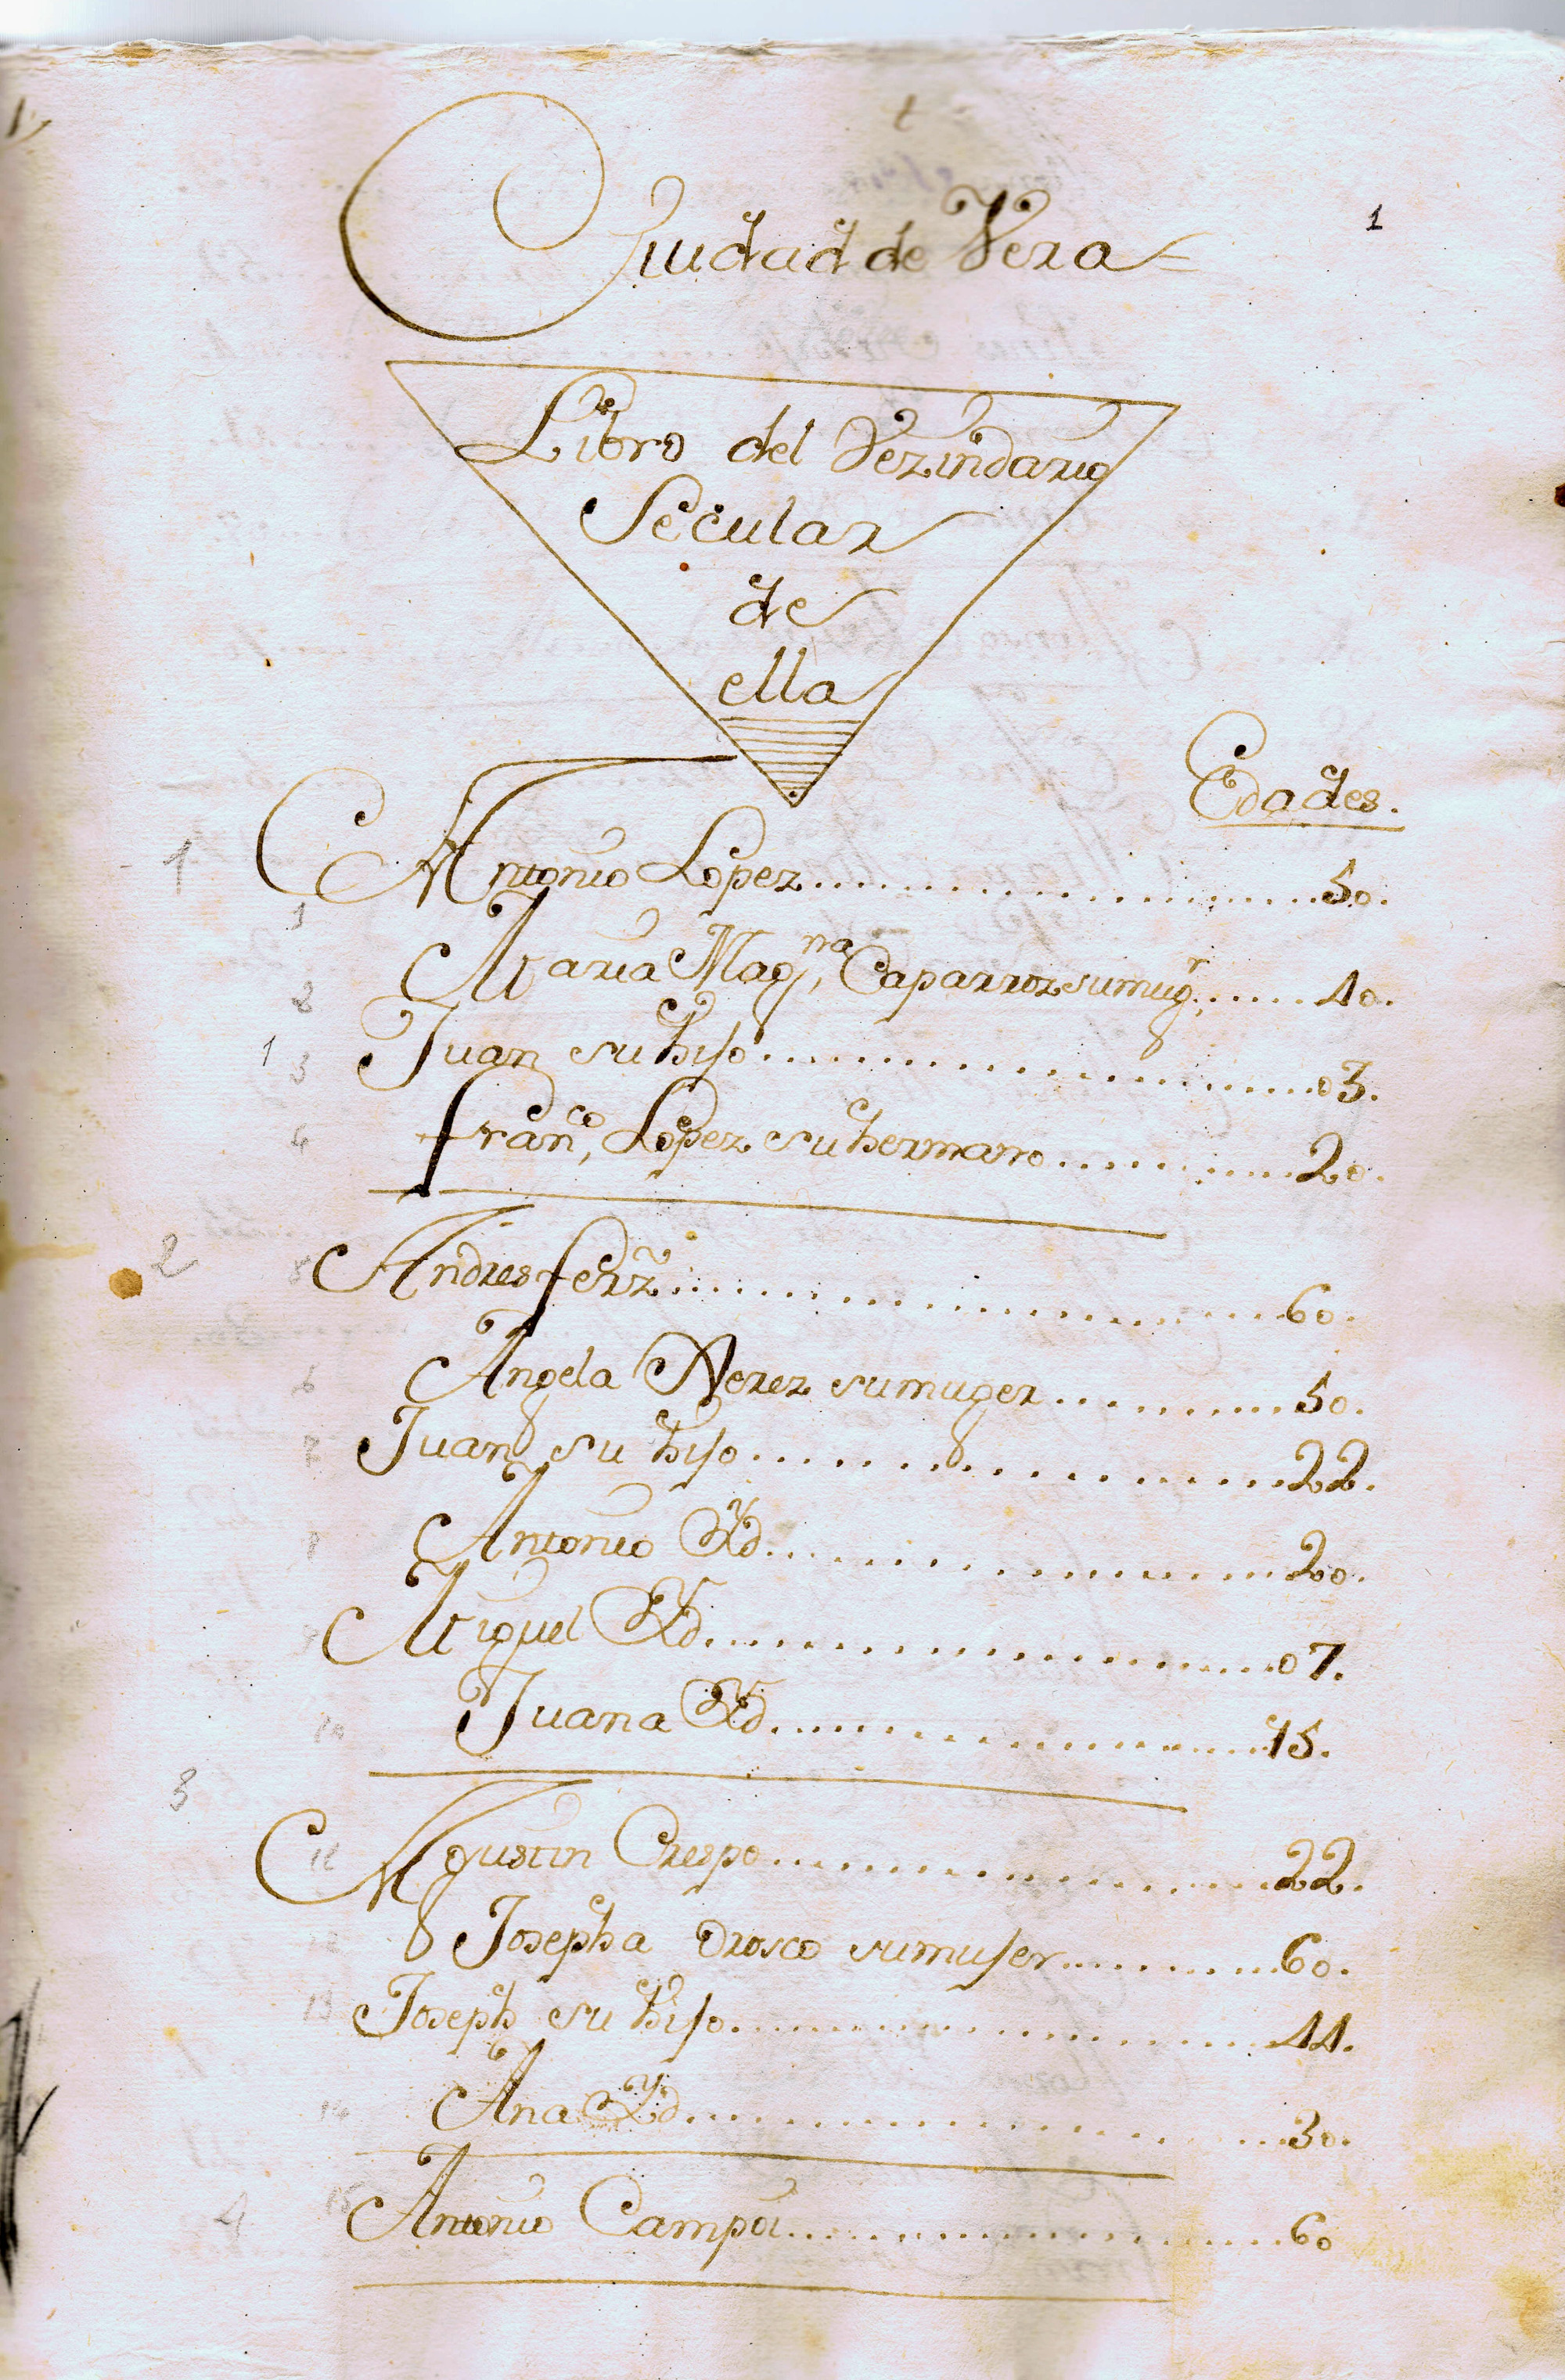 1
Ciudad de Vera
Libro del Vezindario
Secular
de
ella
Edades.
1 Antonio Lopez 50.
1
2 Maria Mag.na Caparroz su mug.r 40.
1 3 Juan su hijo 03.
4 Fran.co Lopez su hermano 20.
2 5 Andres Ferz 60.
6 Angela Xerez su muger 50.
7 Juan su hijo 22.
8 Antonio Yd 20.
Miguel Yd 07.
10 Juana Yd 15.
3
Agustin Crespo 22.
Josepha Orosco su mujer 60.
13 Joseph su hijo 44.
14 Ana Yd 30.
4 15 Antonio Campoi 60